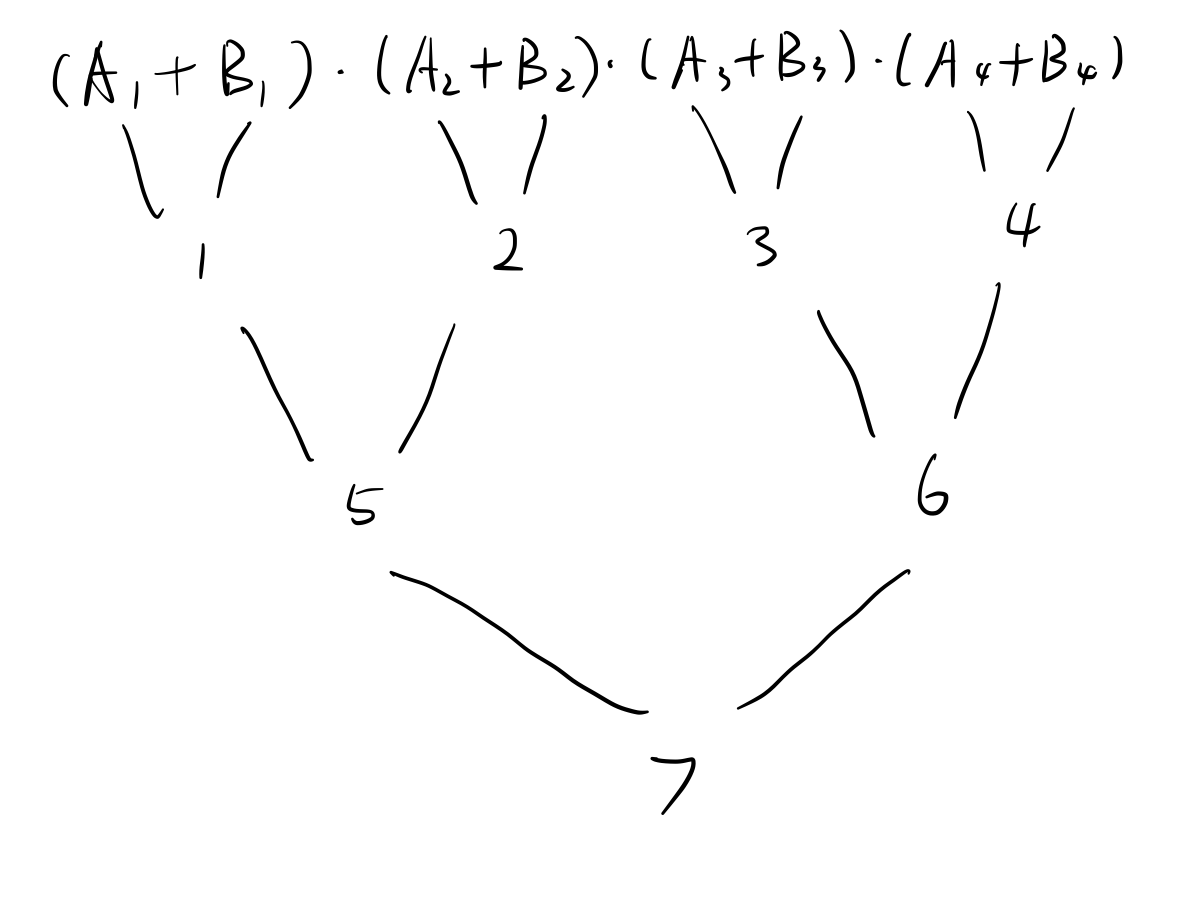 (A₁+B₁)·(A₂+B₂)·(A₃+B₃)·(A₄+B₄)
1 2 3 4
5 6
7